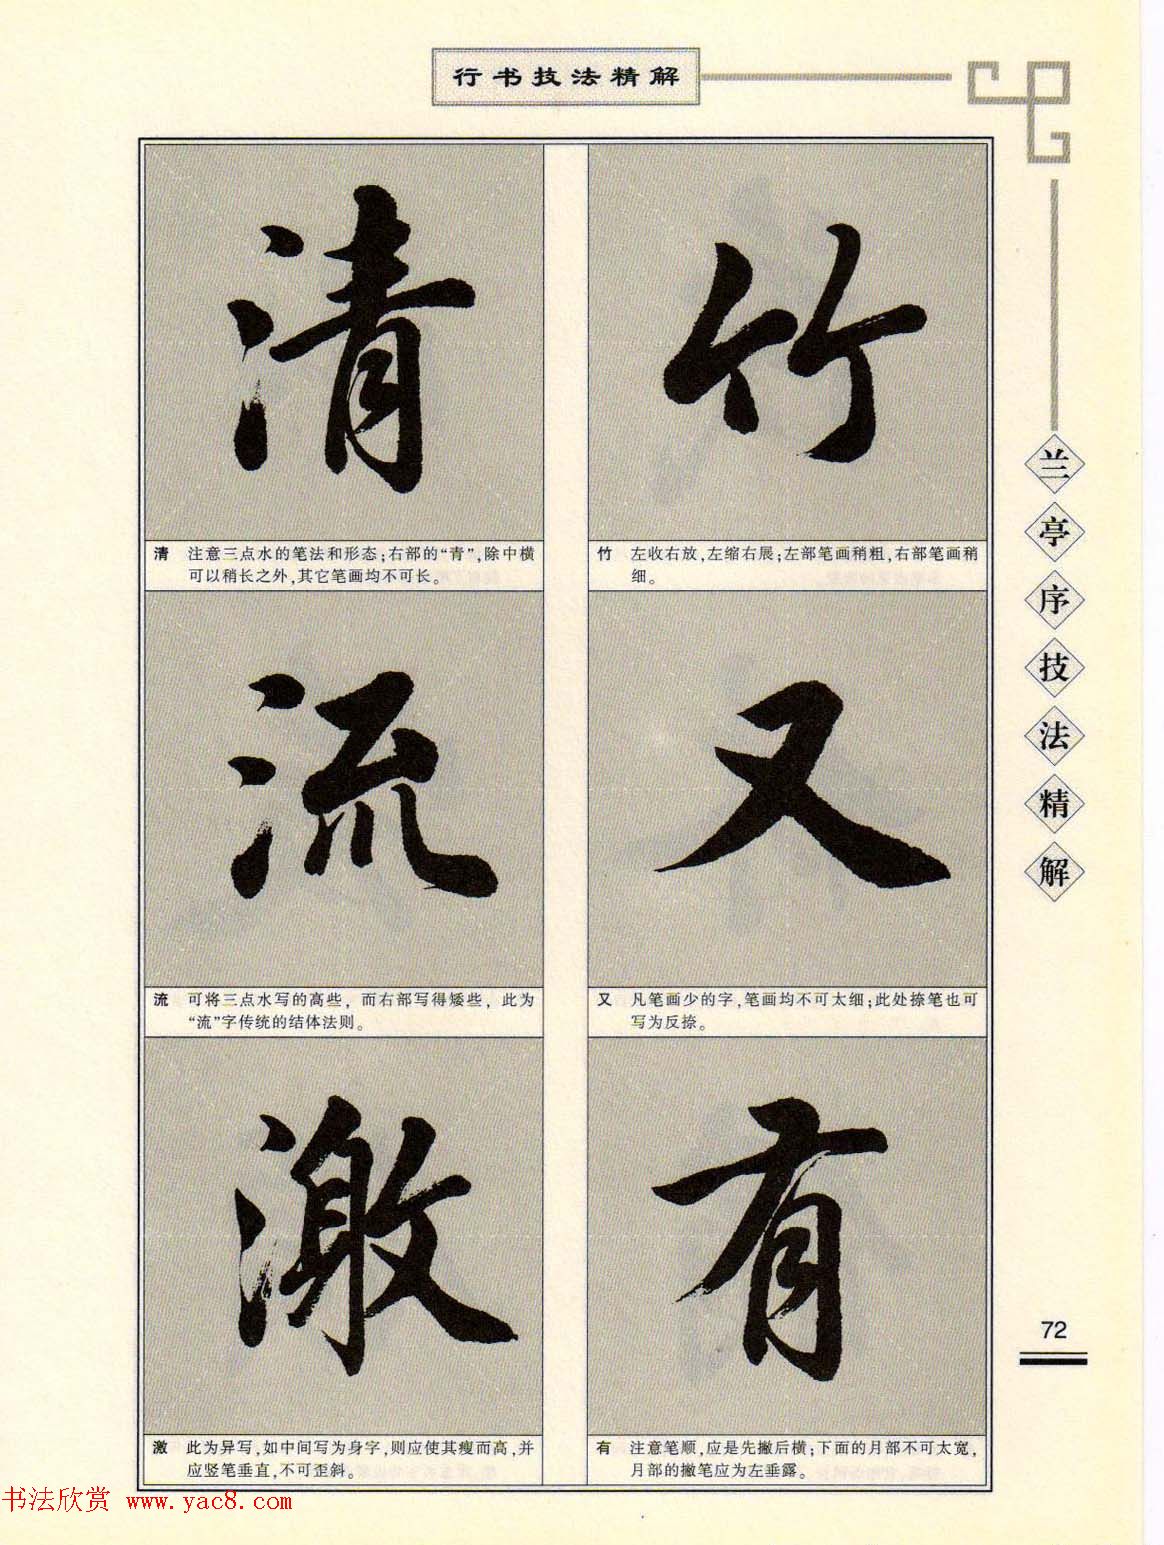 行书技法精解
竹
竹 左收右放,左缩右展;左部笔画稍粗,右部笔画稍
细。
又
又 凡笔画少的字,笔画均不可太细;此处捺笔也可
写为反捺。
有
有 注意笔顺,应是先撇后横;下面的月部不可太宽,
月部的撇笔应为左垂露。
清
清 注意三点水的笔法和形态;右部的“青”,除中横
可以稍长之外,其它笔画均不可长。
流
流 可将三点水写的高些，而右部写得矮些，此为
“流”字传统的结体法则。
激
激 此为异写,如中间写为身字,则应使其瘦而高,并
应竖笔垂直,不可歪斜。
兰亭序技法精解
72
书法欣赏 www.yac8.com